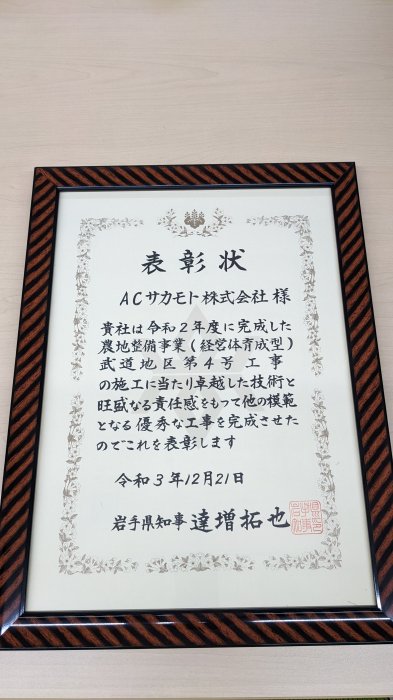 表彰状
ACサカモト株式会社 様
貴社は令和2年度に完成した
農地整備事業(経営体育成型)
武道地区第4号工事
の施工に当たり卓越した技術と
旺盛なる責任感をもって他の模範
となる優秀な工事を完成させた
のでこれを表彰します
令和3年12月21日
岩手県知事 達増拓也